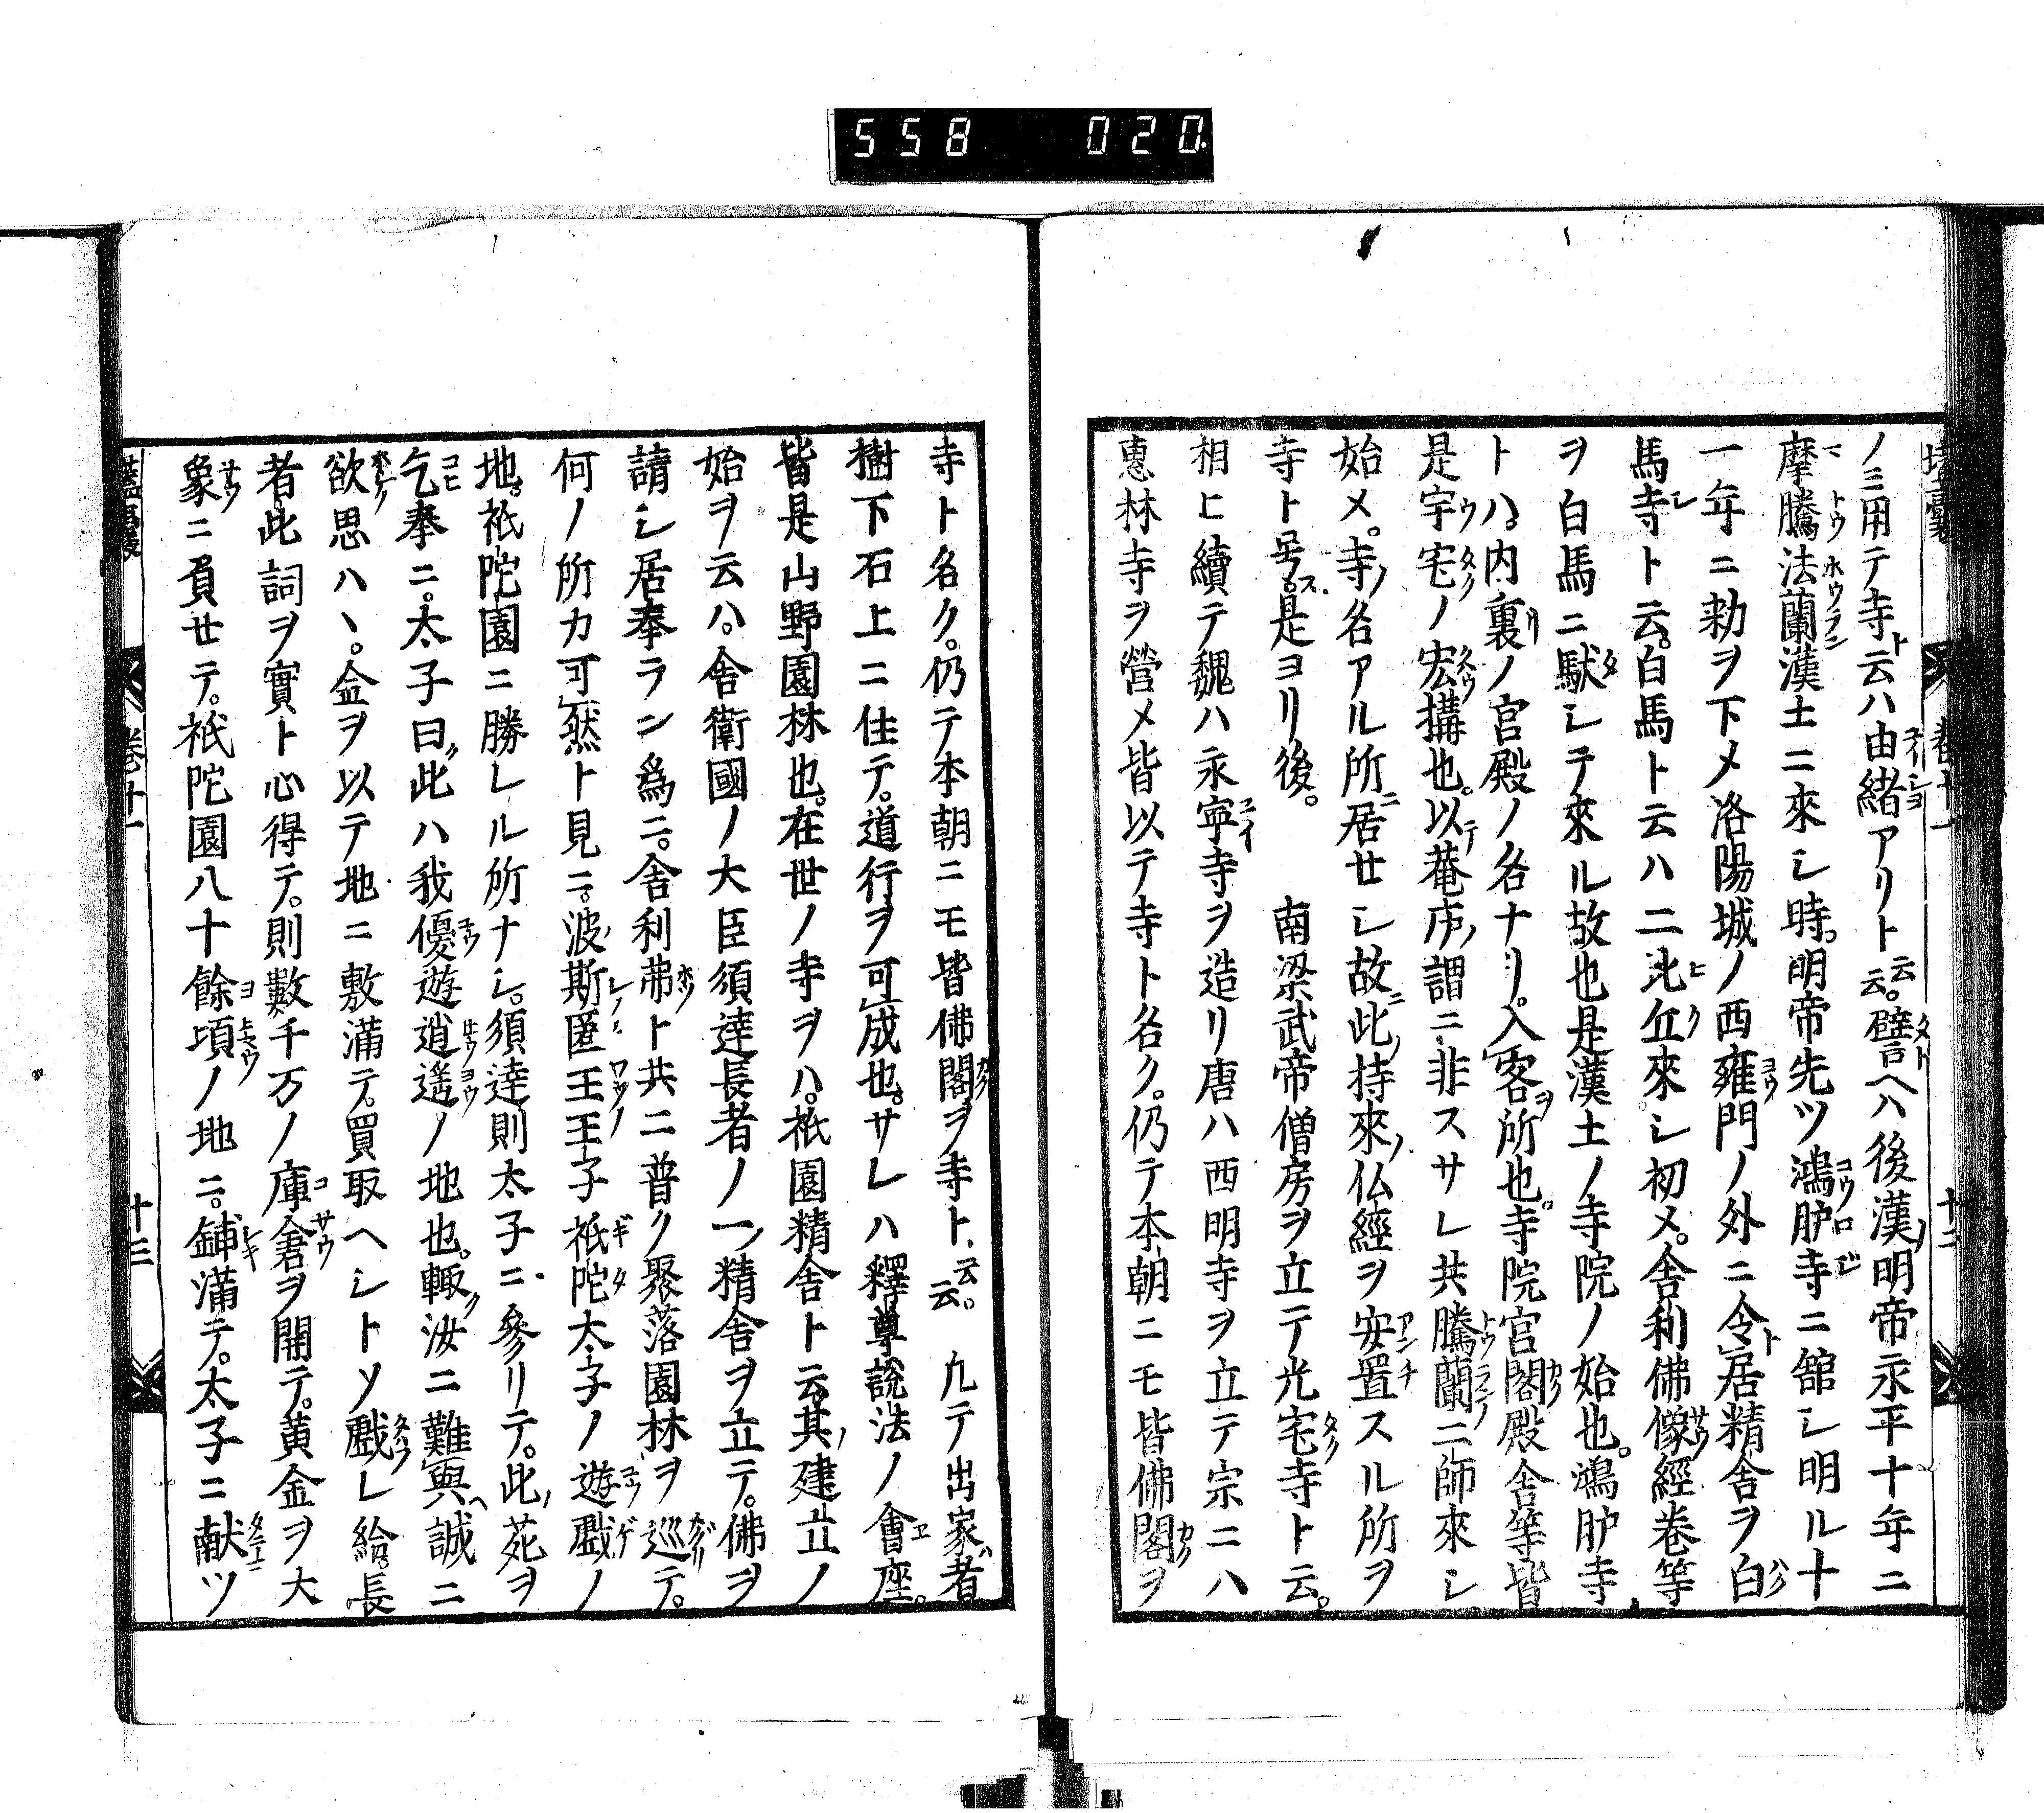 558 020
ノミ用テ寺ト云ハ由緒アリト云云。譬ヘハ後漢ノ明帝永平十年ニ
摩騰法蘭漢土ニ來シ時。明帝先ツ鴻胪寺ニ舘シ明ル十
一年ニ勅ヲ下メ洛陽城ノ西雍門ノ外ニ令居精舎ヲ白
馬寺ト云。白馬ト云ハ二比丘來シ初メ。舎利佛像經卷等
ヲ白馬ニ駄シテ來ル故也是漢土ノ寺院ノ始也。鴻胪寺
トハ内裏ノ官殿ノ名ナリ。入客所也。寺院宮閣殿舎等皆
是宇宅ノ宏搆也。以テ菴ノ謂ニ非スサレ共騰蘭二師來シ
始メ。寺ノ名アル所ニ居せシ故ニ此ノ持來ノ仏經ヲ安置スル所ヲ
寺ト号ス。是ヨリ後。南梁武帝僧房ヲ立テ光宅寺ト云。
相ヒ續テ魏ハ永寧寺ヲ造リ唐ハ西明寺ヲ立テ宗ニハ
惠林寺ヲ營メ皆以テ寺ト名ク。仍テ本朝ニモ皆佛閣ヲ
寺ト名ク。仍テ本朝ニモ皆佛閣ヲ寺ト云云。凡テ出家ハ者
樹下石上ニ住テ。道行ヲ可成也。サレハ釋尊説法ノ會座。
皆是山野園林也。在世ノ寺ヲハ。祇園精舎ト云。其ノ建立ノ
始ヲ云ハ。舎衛國ノ大臣須達長者ノ一ノ精舎ヲ立テ。佛ヲ
請シ居奉ラン爲ニ。舎利弗ト共ニ普ク聚落園林ヲ巡テ。
何ノ所カ可然ト見ニ。波斯匿王ノ王子祇陀太子ノ遊戲ノ
地。祇陀園ニ勝レル所ナシ。須達則太子ニ參リテ。此ノ苑ヲ
乞奉ニ。太子曰ク此ハ我優遊逍遥ノ地也。輙ク汝ニ難與ヘ誠ニ
欲思ハヽ。金ヲ以テ地ニ敷滿テ。買取ヘシトソ戲レ給。長
者此詞ヲ實ト心得テ。則數千万ノ庫倉ヲ開テ。黄金ヲ大
象ニ負せテ。祇陀園八十餘頃ノ地ニ。鋪滿テ。太子ニ献ツ
卷十一
十三